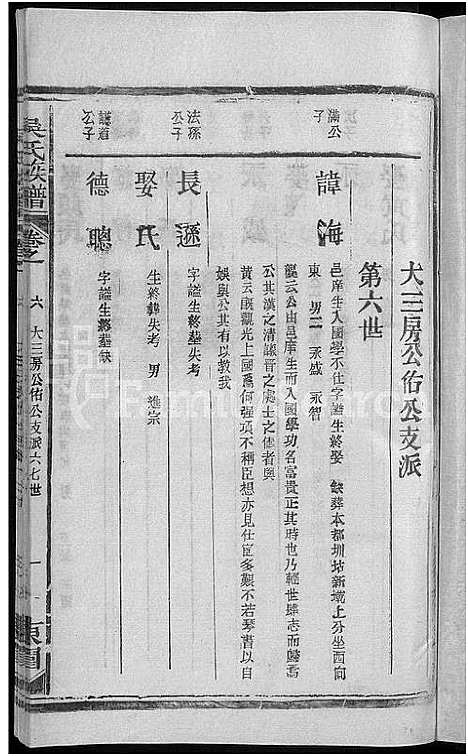 大三房公佑公支派
第六世
滿公
子
諱海
邑庠生入國學不仕字謚生終娶 缺葬本都圳坫新墈上分坐西向
東 男二 永盛 永智
觀三公由邑庠生而入國學功名富貴正其時也乃輕世肆志而歸焉
公其漢之清議晉之處士之儔者與
黃云既觀光上國焉何强項不稱臣想亦見仕宦多艱不若琴書以自
娛與公其有以教我
法孫
公子
長遜
字謚生終葬失考
娶氏
生終葬失考 男 進宗
謹道
公子
德聰
字謚生終葬缺
吳氏族譜
卷之
六 大三房公佑公支派六七世
一